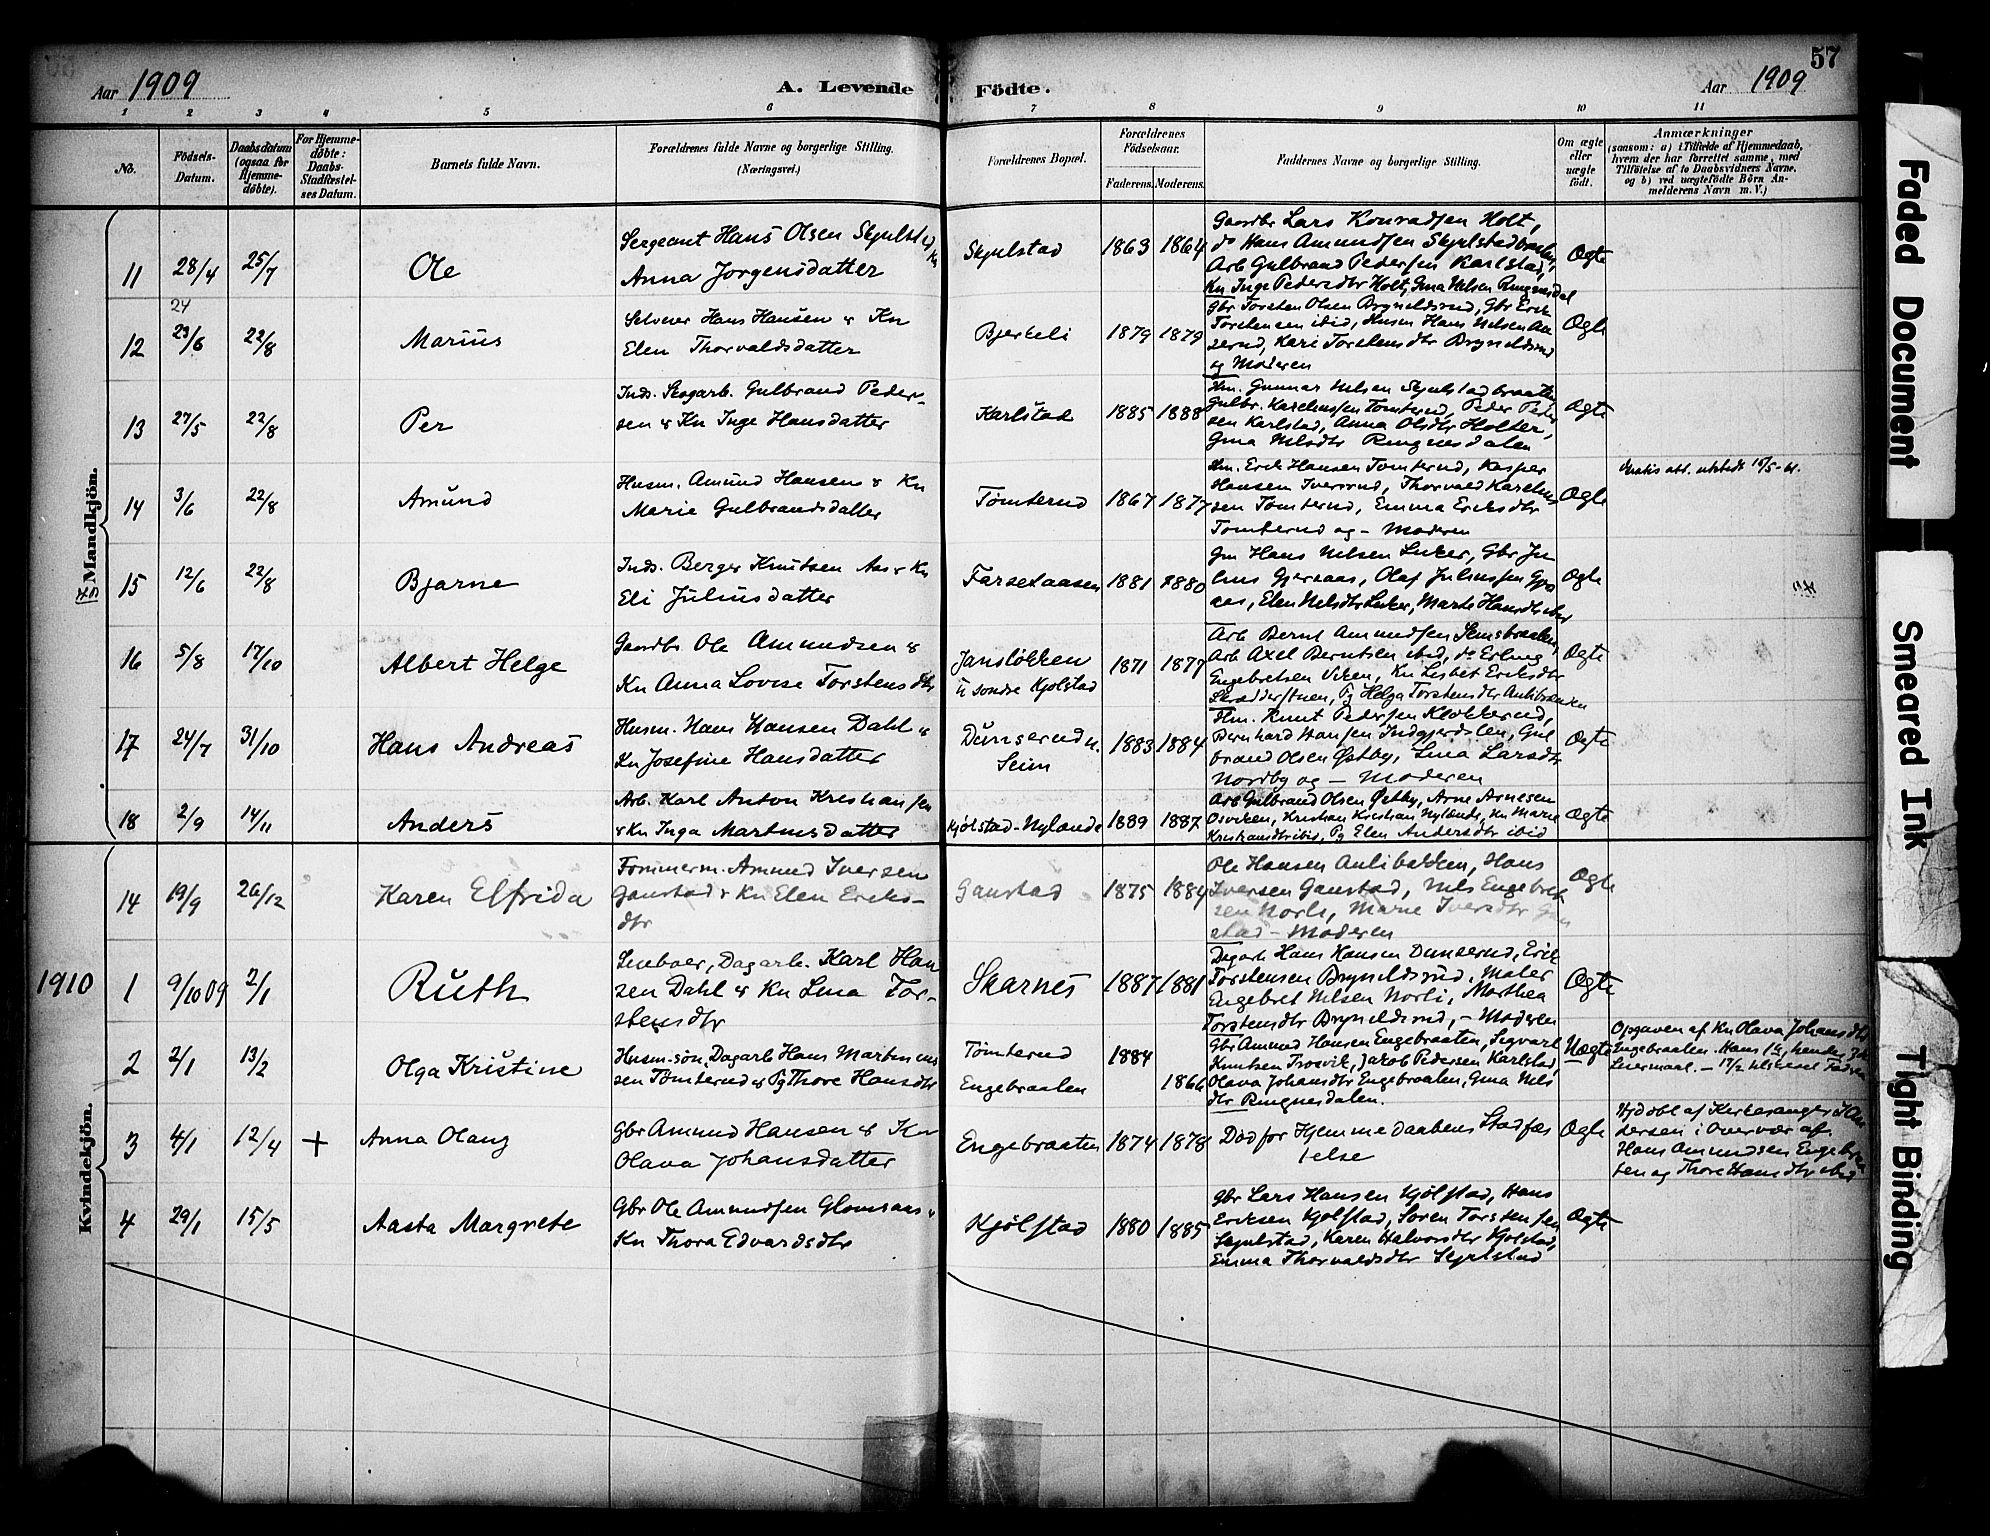 57
Aar 1909
A. Levende Födte.
Aar 1909
1 2 3 4 5 6 7 8 9 10 11
No.
Födsels-Datum.
Daabsdatum (ogsaa for Hjemme-döbte).
For Hjemme-döbte: Daabs-Stadfæstel-ses Datum.
Barnets fulde Navn.
Forældrenes fulde Navne og borgerlige Stilling.
(Næringsvei.)
Forældrenes Bopæl.
Forældrenes Födselsaar.
Faderens. Moderens.
Faddernes Navne og borgerlige Stilling.
Om ægte eller uægte födt.
Anmærkninger
(saasom: a) i Tilfælde af Hjemmedaab,
hvem der har forrettet samme, med
Tilföielse af to Daabsvidners Navne,
og b) ved uægtefödte Börn An-
melderens Navn m. V.)
Mandkjön.
11 28/4 25/7 Ole
Sergeant Hans Olsen Skjulstad
Anna Jorgensdatter
Skjulstad 1863 1864
Gaardbr Lars Konradsen Holt,
do Hans Amundsen Skjulstadbraaten,
Arb Gulbrand Pedersen Karlstad,
Kn Inge Pedersdtr Holt, Gina Nilsen Ringnesdal
Ægte
24
12 23/6 22/8 Marius
Selveier Hans Hansen & Kn
Elen Thorvaldsdatter
Bjerkeli 1879 1879
Gbr Torsten Olsen Brynildsrud, Gbr Erik
Torstensen ibid, Husm Hans Nilsen
Kari Torstensdtr Brynildsrud
og Moderen
Ægte
13 27/5 22/8 Per
Inds. Skogarb. Gulbrand Peder-
sen & Kn Inge Hansdatter
Karlstad 1885 1888
Hm. Gunnar Nilsen Skjulstadbraaten,
Gulbr. Karelinssen Tomterud, Peder Peder
sen Karlstad, Anna Olsdtr Holter,
Gina Nilsdtr Ringnesdalen
Ægte
14 3/6 22/8 Amund
Husm. Amund Hansen & Kn
Marie Gulbrandsdatter
Tømterud 1867 1877
Hm. Erik Hansen Tomterud, Kasper
Hansen Iversrud, Thorvald Karelius
sen Tomterud, Emma Eriksdtr
Tomterud og - Moderen
Ægte
Gratis att. utstedt 15/5-61.
15 12/6 22/8 Bjarne
Inds. Berger Knutsen Aas & Kn
Eli Juliusdatter
Farsetaasen 1881 1880
Gm Hans Nilsen Luker, Gbr Ju
lius Gjersaas, Olaf Juliussen Gjers
aas, Elen Nilsdtr Luker, Marte Hansdtr ibid
Ægte
16 5/8 17/10 Albert Helge
Gaardbr. Ole Amundsen &
Kn Anna Lovise Torstensdtr
Jansløkken
u søndre Kjolstad
1871 1877
Arb Bernt Amundsen Semsbraaten,
Arb Axel Berntsen ibid, do Erling
Engebretsen Viken, Kn Lisbet Eriksdtr
Skrædderstuen, Pg Helga Torstensdtr Aulibakken
Ægte
17 24/7 31/10 Hans Andreas
Husm. Hans Hansen Dahl &
Kn Josefine Hansdatter
Dunserud u.
Seim
1883 1884
Hm. Knut Pedersen Klokkerud,
Bernhard Hansen Indgjerdslen, Gul
brand Olsen Østby, Lina Larsdtr
Nordby og - Moderen
Ægte
18 2/9 14/11 Anders
Arb. Karl Anton Kristiansen
& Kn Inga Martinsdatter
Kjølstad-Nylænde 1889 1887
Arb Gulbrand Olsen Østby, Arne Arnesen
Osviken, Kristian Kristian Nylænde, Kn Marie
Kristiansdtr ibid, Pg Elen Andersdtr ibid
Ægte
Kvindekjön.
14 19/9 26/12 Karen Elfrida
Tømmerm. Amund Iversen
Gaustad & Kn Elen Eriks-
dtr
Gaustad 1875 1884
Ole Hansen Aulibakken, Hans
Iversen Gaustad, Nils Engebret
sen Norli, Marie Iversdtr Gau
stad - Moderen
Ægte
1910
1 9/10 09 2/1 Ruth
Leieboer, Dagarb. Karl Han
sen Dahl & Kn Lina Tor-
stensdtr
Skarnes 1887 1881
Dagarb Hans Hansen Dunserud, Erik
Torstensen Brynildsrud, Maler
Engebret Nilsen Norli, Marthea
Torstensdtr Brynildsrud, - Moderen
Ægte
2 2/1 13/2 Olga Kristine
Husm.søn, Dagarb Hans Martinius
sen Tømterud & Pg Thore Hansdtr
Tømterud
Engebraaten
1884
1866
Gbr Amund Hansen Engebraaten, Sigvart
Knutsen Trosvik, Jakob Pedersen Karlstad,
Olava Johansdtr Engebraaten, Gina Nils
dtr Ringnesdalen.
Uægte
Opgaven af Kn Olava Johansdtr
Engebraaten. Hans 1ste, hendes 3die
Leiermaal. - 17/2 tilstaaet Fadren
3 4/1 12/4 + Anna Olaug
Gbr Amund Hansen & Kn
Olava Johansdatter
Engebraaten 1874 1878
Død før Hjemmedaabens Stadfæs
telse
Ægte
Hjdøbt af Kirkesanger
i Overvær af
Hans Amundsen Engebraa
ten og Thore Hansdtr ibid
4 29/1 15/5 Aasta Margrete
Gbr Ole Amundsen Glomsaas &
Kn Thora Edvardsdtr
Kjølstad 1880 1885
Gbr Lars Hansen Kjølstad, Hans
Eriksen Kjolstad, Soren Torstensen
Skjulstad, Karen Halvorsdtr Kjolstad,
Emma Thorvaldsdtr Skjulstad
Ægte
Faded Document
Smeared Ink
Tight Binding